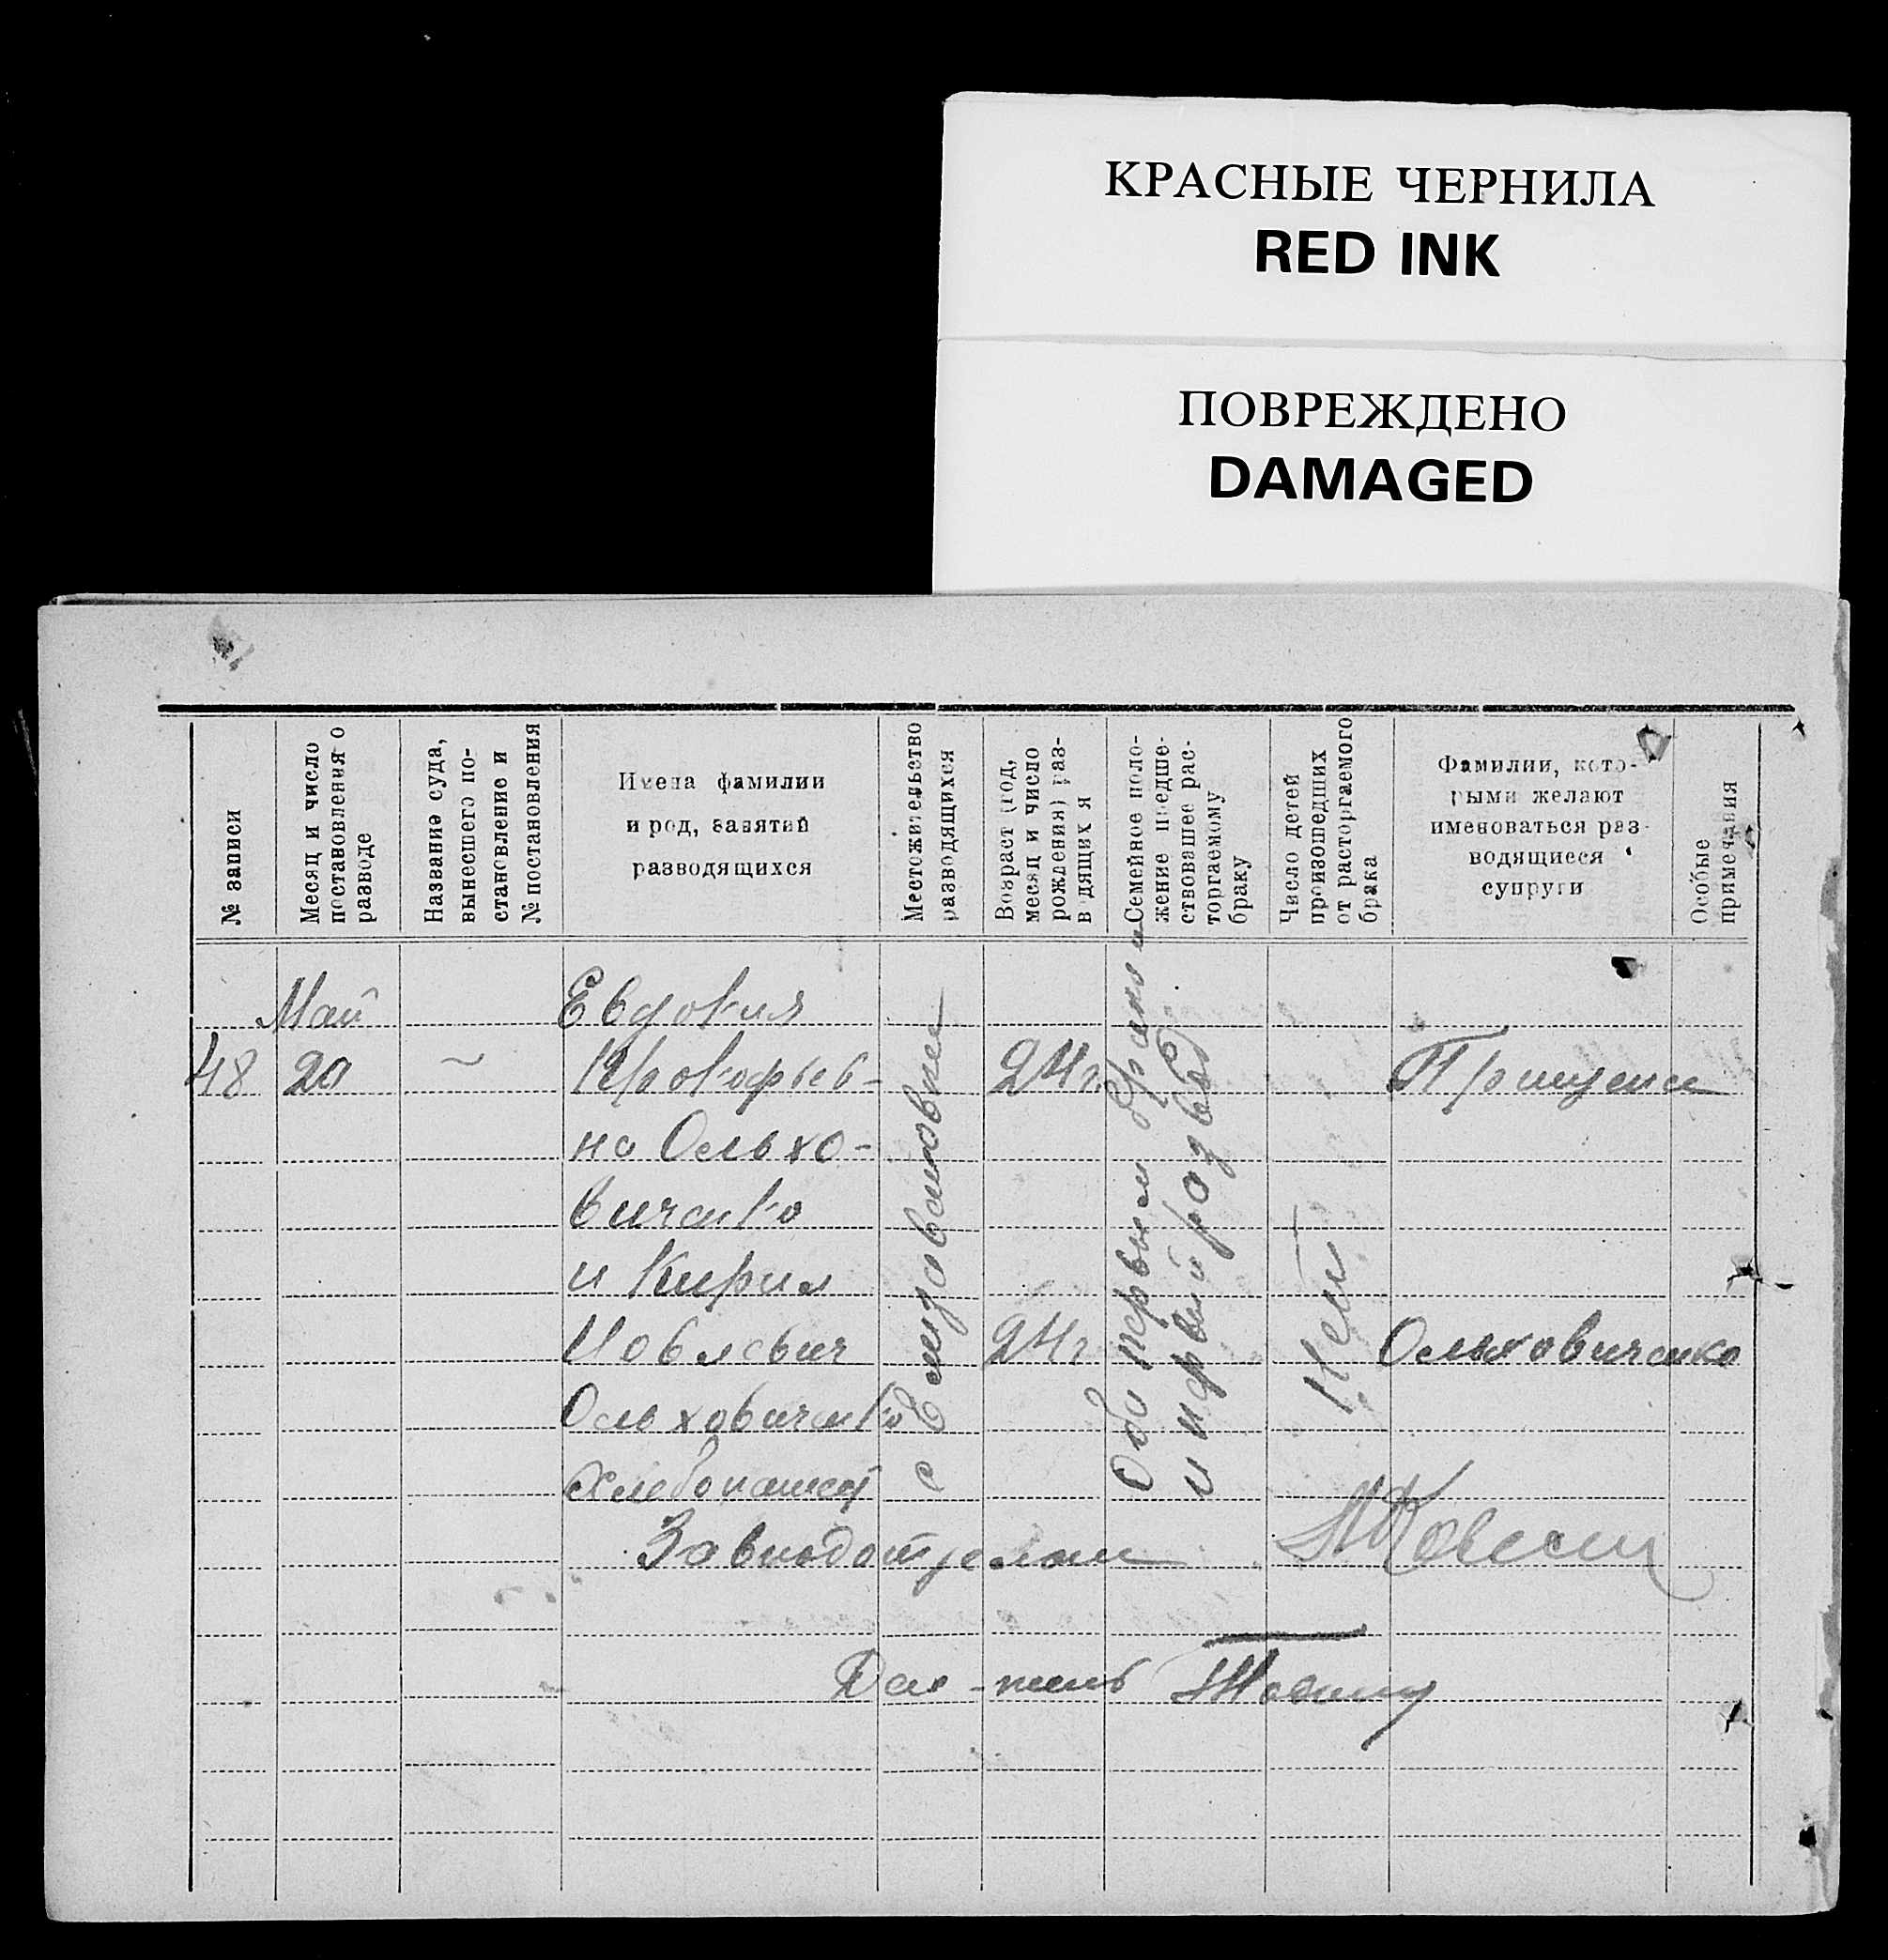 КРАСНЫЕ ЧЕРНИЛА
RED INK
ПОВРЕЖДЕНО
DAMAGED
№ записи
Месяц и число
постановления о
разводе
Название суда,
вынесшего по-
становление и
№ постановления
Имена фамилии
и род, занятий
разводящихся
Местожительство
разводящихся
Возраст (год,
месяц и число
рождения) раз-
в дящих я
Семейное поло-
жение предше-
ствовавшее рас-
торгаемому
браку
Число детей
произошедших
от расторгаемого
брака
Фамилии, кото-
рыми желают
именоваться раз-
водящиеся
супруги
Особые
примечания
Май
Евдокия
48
20
~
Прокофьев-
24 г.
на Ольхо-
виченко
и Кирил
24 г
Ольховиченко
Ольховиченко
хлебопашец
с Елизаветовке
Оба первым браком
и первый развод
Нет
Завподотделом